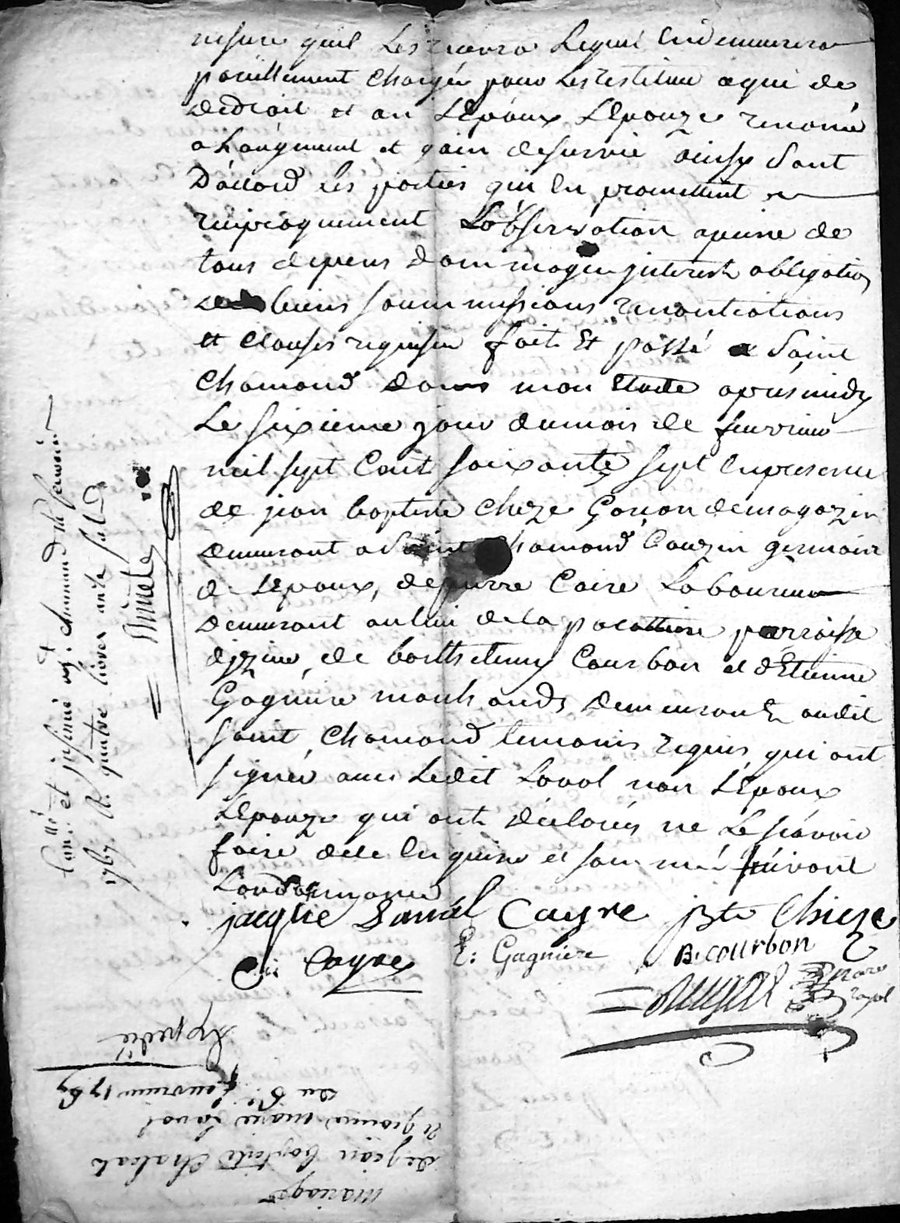 mesure quil Les recevra Lequel En demeurera
pareillement chargée pour Les restituer a qui de
dedroit et au LEpoux LEpouze renoncé
a Laugment et gain desurvie ainsy Sont
Daccord les parties qui En promettent
reciproquement Lobservation apeine de
tous depens dommages jnterest obligation
de biens soummissions renontiations
et clauses requises fait Et passé a Saint
Chamond dans mon Etude apres midy
Le sixieme jour dumois de feuvrier
mil sept Cent soixante sept En presence
de jean baptiste Chieze Garçon demagazin
demeurant a Saint Chamond Couzin germain
de LEpoux, de pierre Caire Laboureur
demeurant au lieu de la parroisse
djzieux, de barthelemy Courbon et dEtienne
Gagniere marchands demeurants audit
saint Chamond temoins requis qui ont
signé avec Ledit Laval non LEpoux
LEpouze qui ont déclarés ne Le sçavoir
faire dece Enquire et sommé suivant
Lordonnance
jacque Laval Cayre jBte Chieze
Cayre E: Gagniere B. Courbon
no.re royal
Con.llé et jnsinué a S.t Chamond
1767. R. quatre livres
Expedié
mariage
dejean baptiste
et jeanne marie Laval
du 6e feuvrier 1767